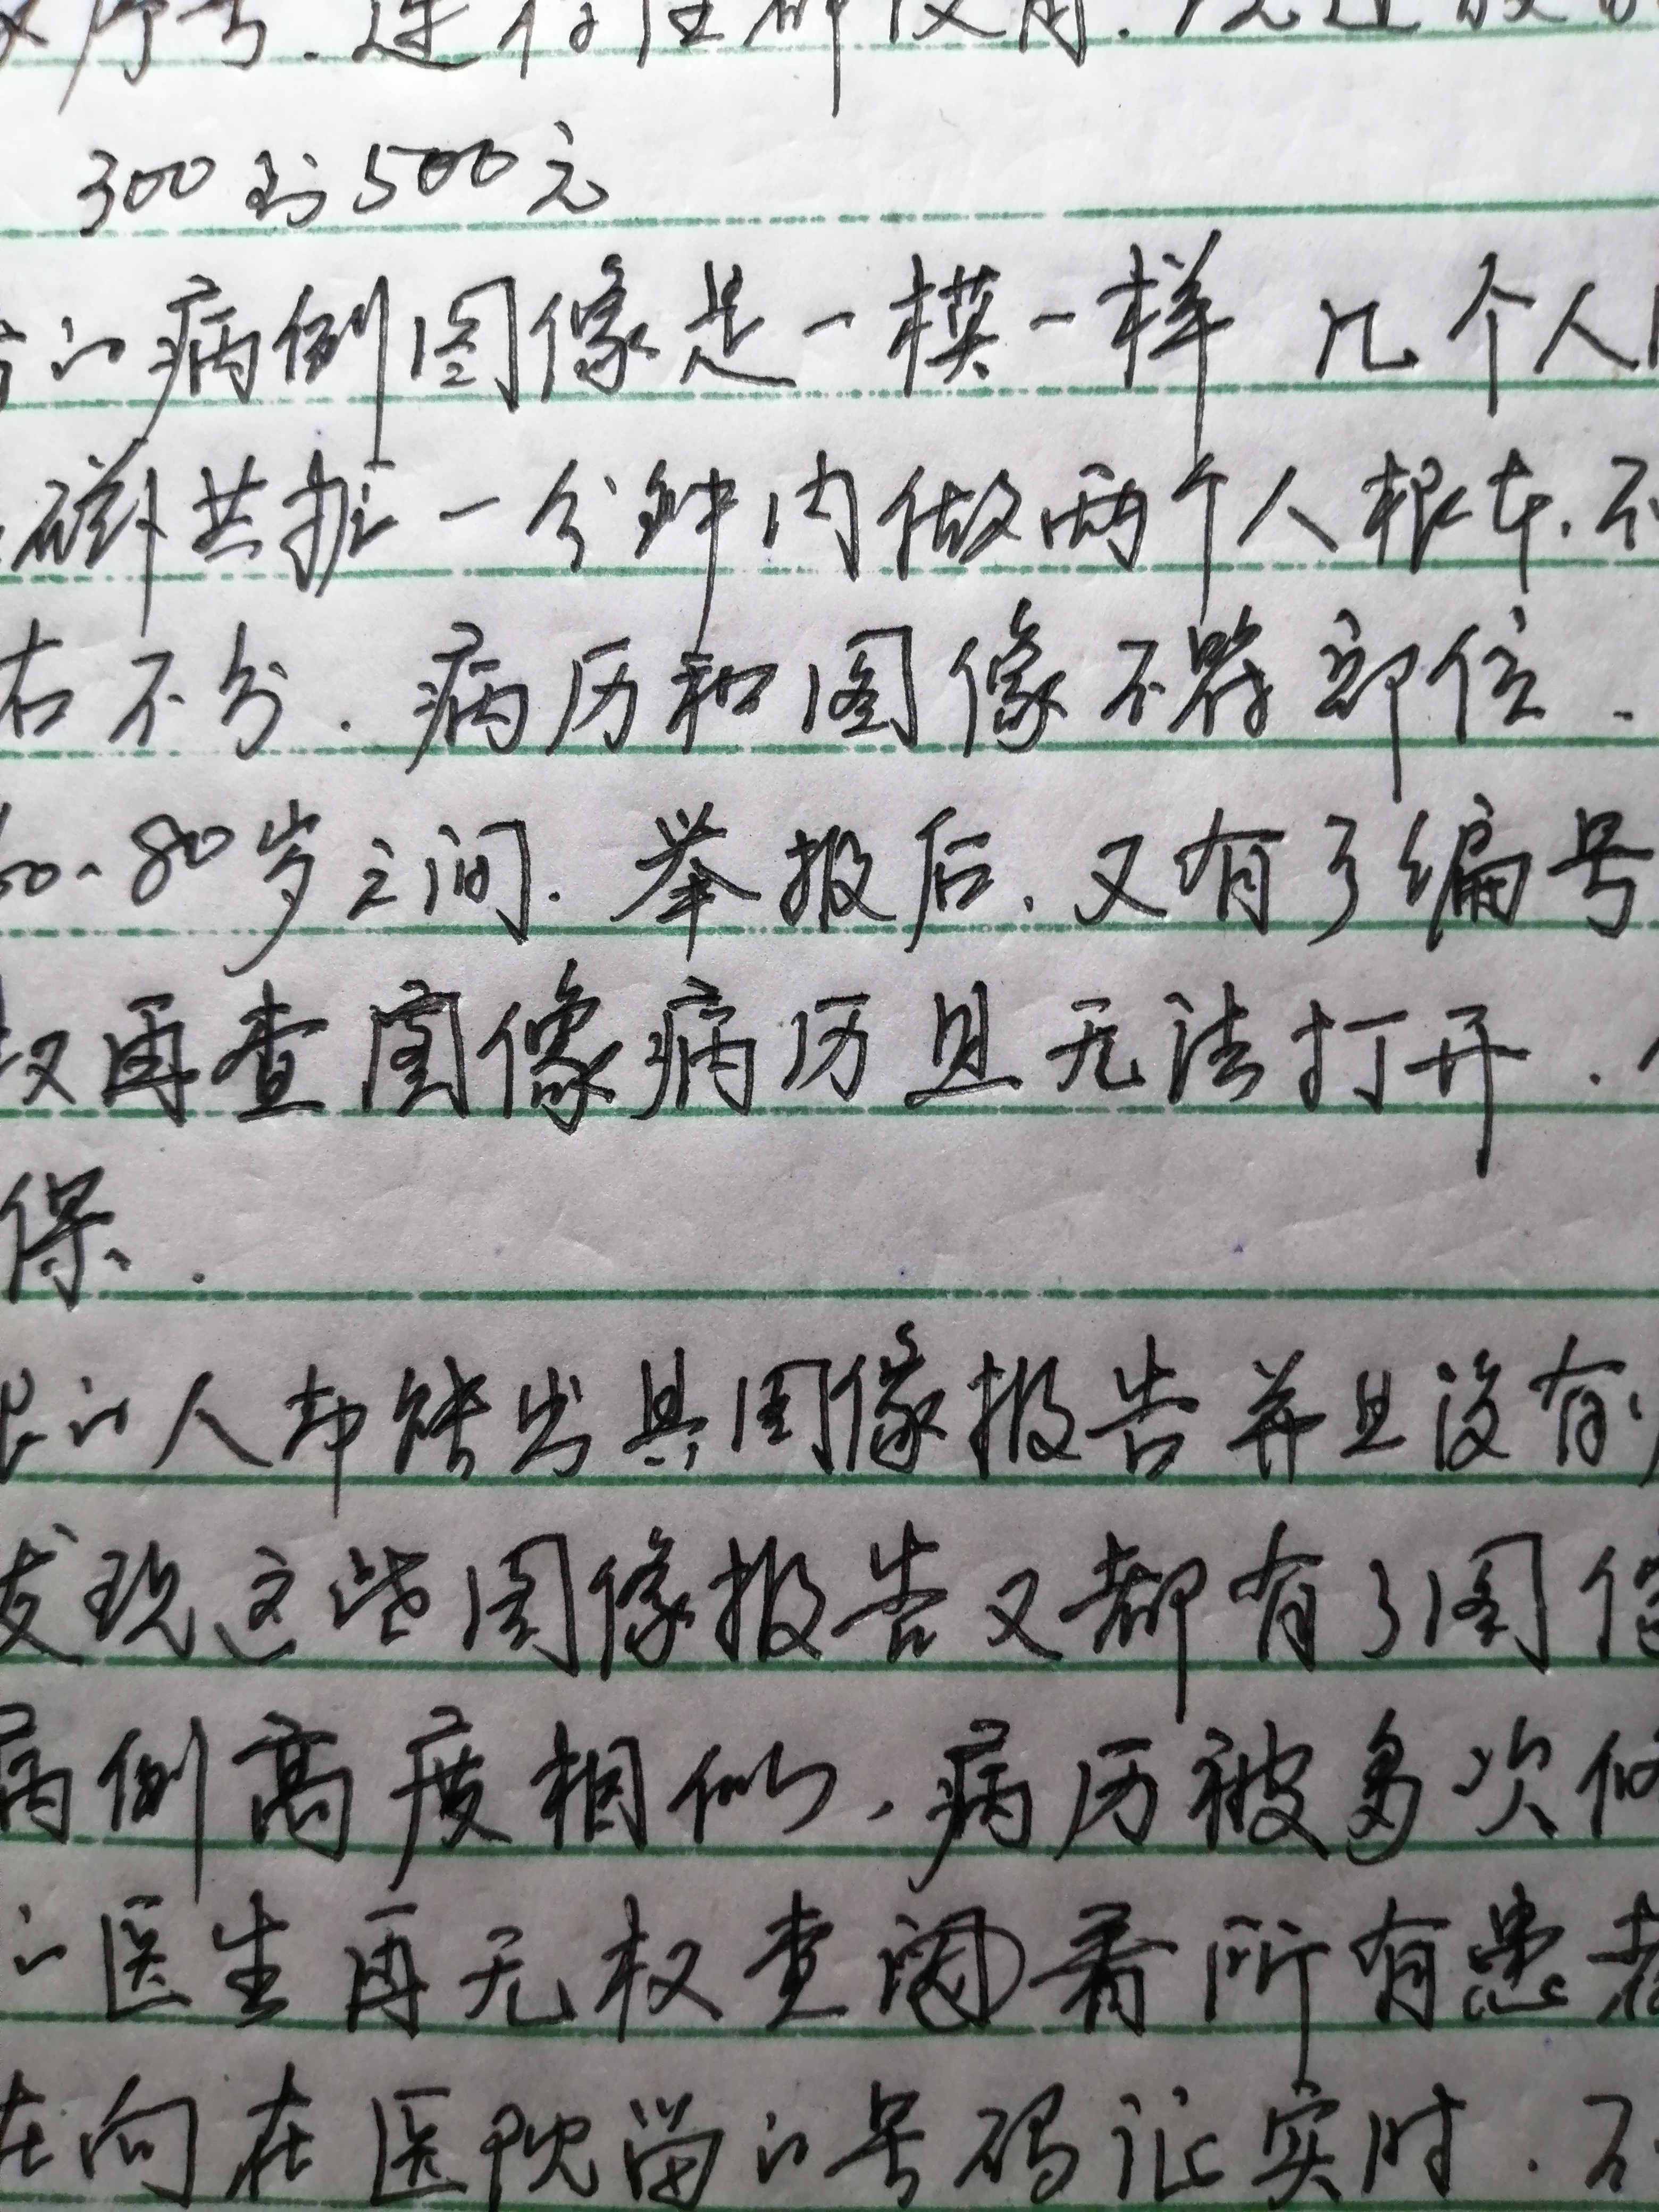 序号.进行注射使用.
300到500元
的病例图像是一模一样 几个人
磁共振一分钟内做两个人根本.不
右不分.病历和图像不符部位.
60-80岁之间.举报后.又有了编号
权再查图像病历且无法打开.
保.
的人却能出具图像报告并且没有
发现这些图像报告又都有了图像
病例高度相似.病历被多次修
的医生再无权查阅看所有患者
在向在医院留的号码证实时.不